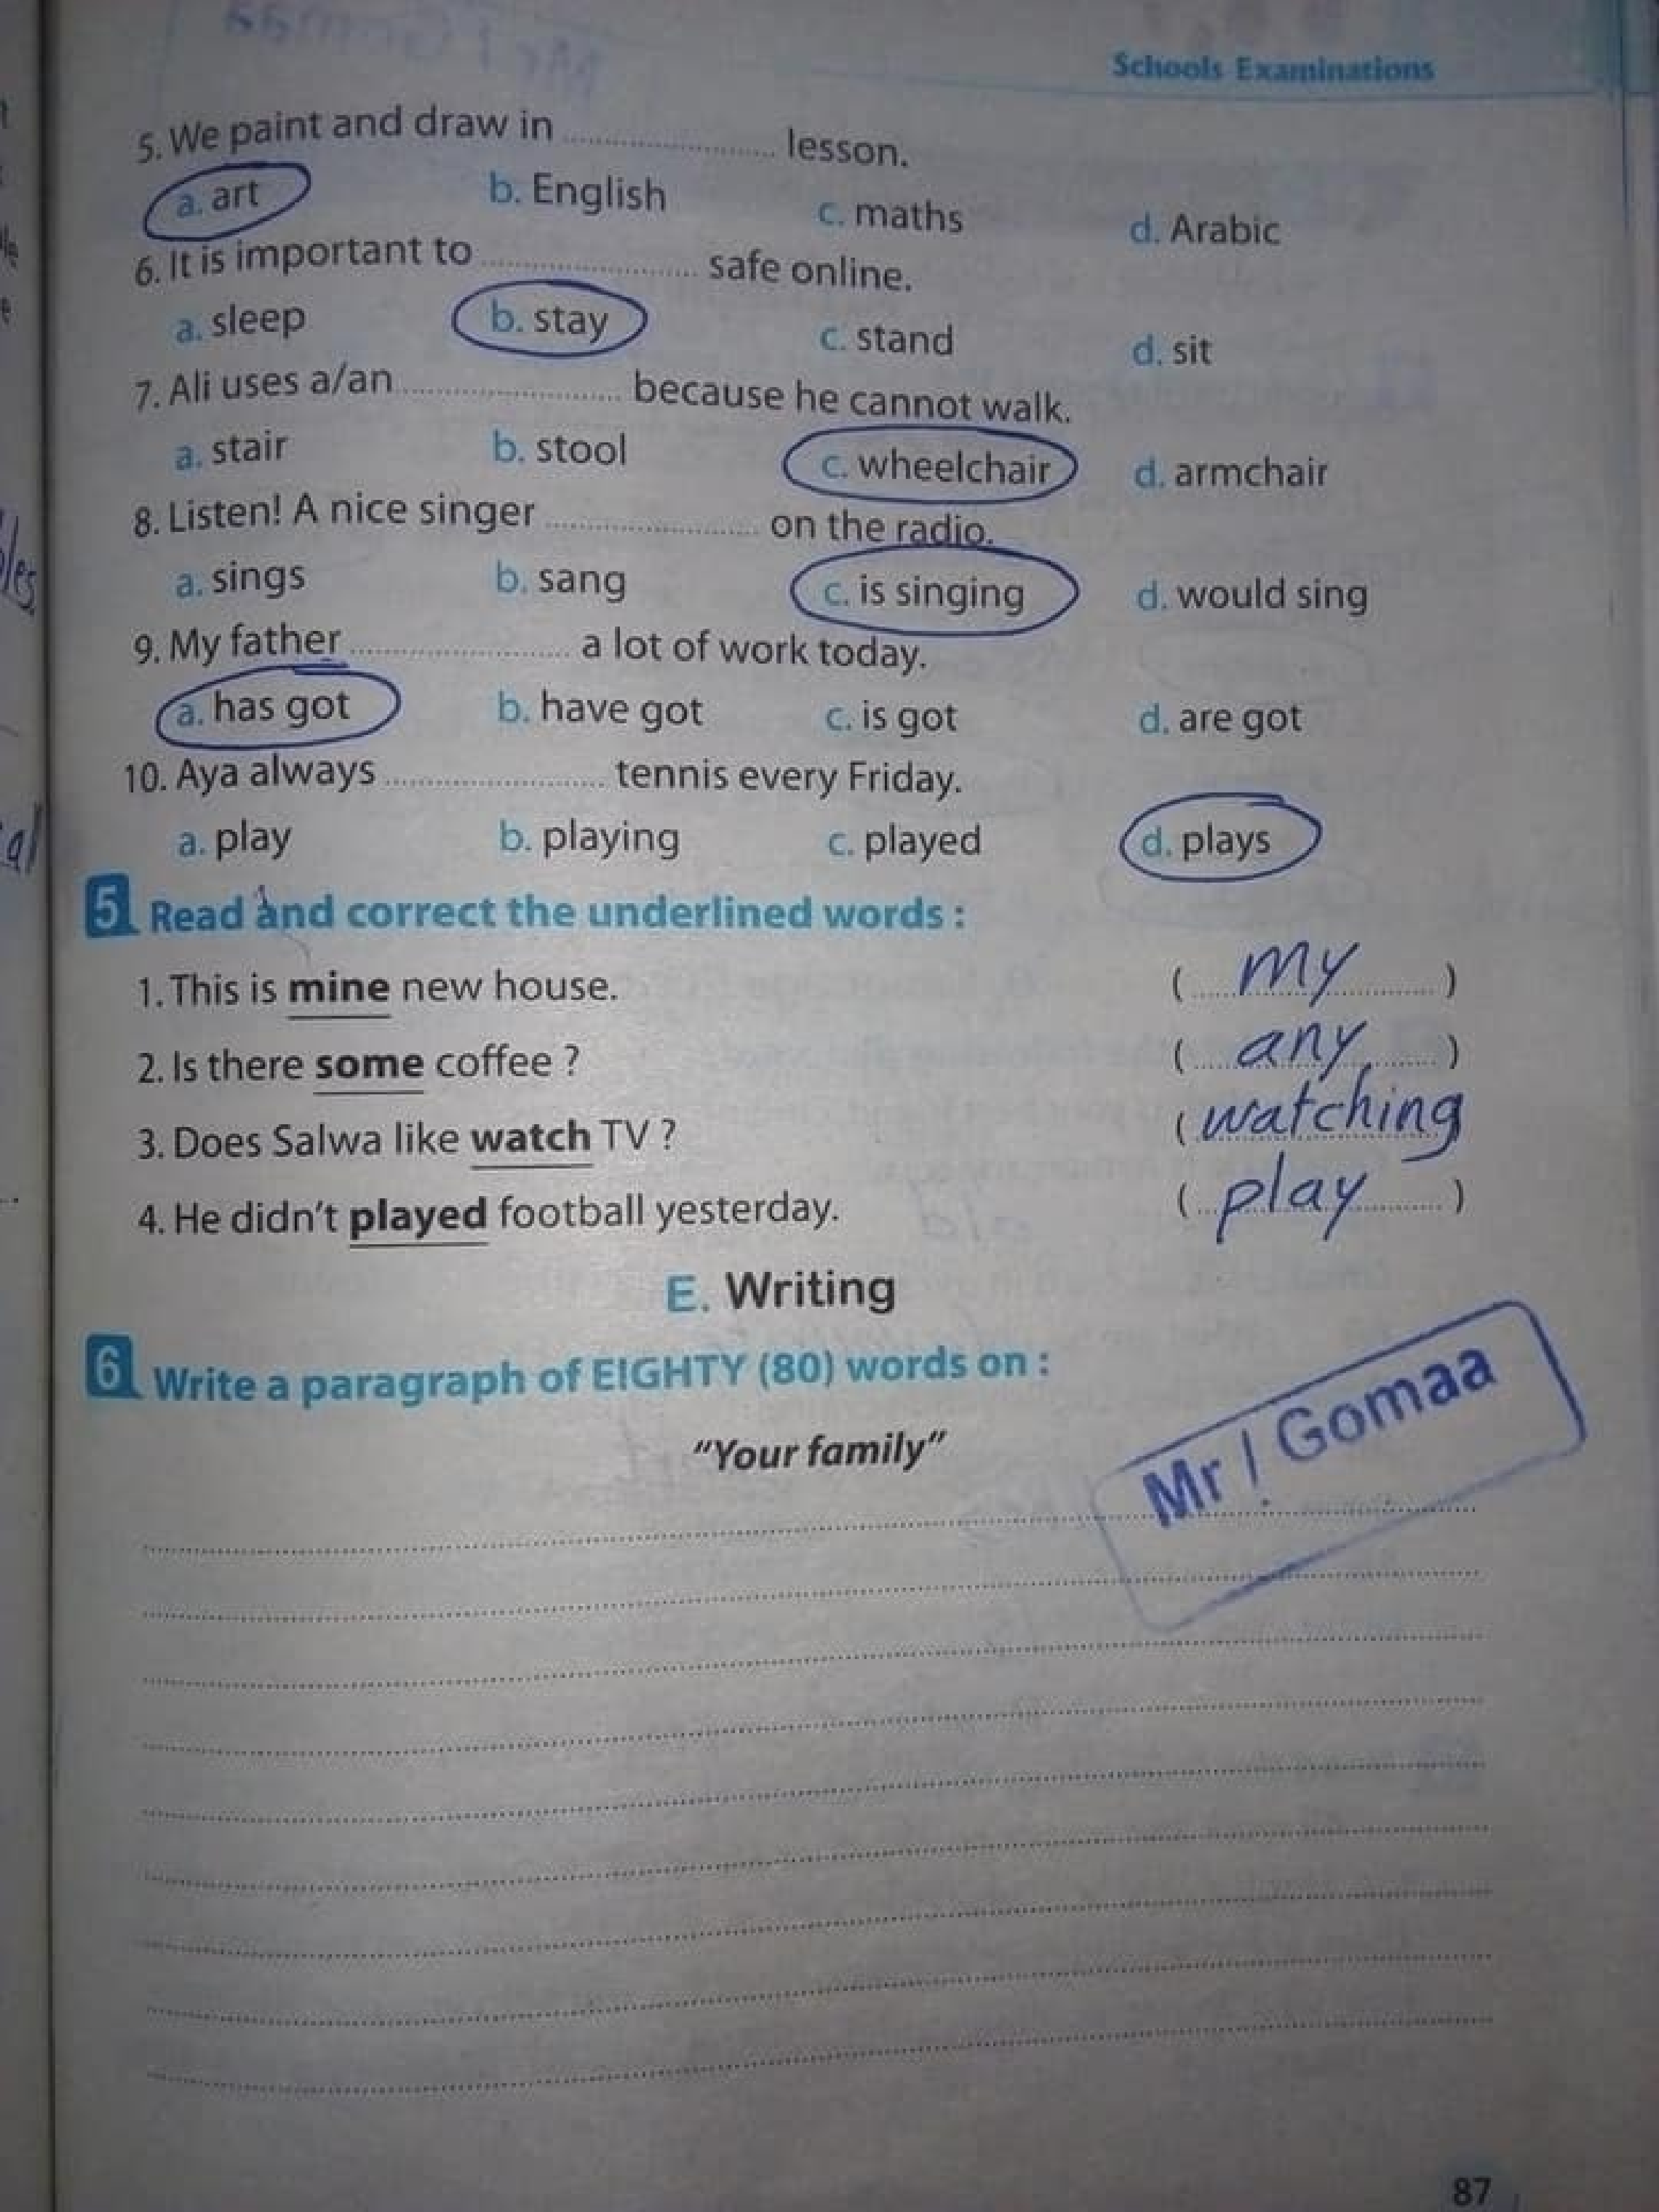 Schools Examinations
5. We paint and draw in .................... lesson.
a. art b. English c. maths d. Arabic
6. It is important to .................... safe online.
a. sleep b. stay c. stand d. sit
7. Ali uses a/an .................... because he cannot walk.
a. stair b. stool c. wheelchair d. armchair
8. Listen! A nice singer .................... on the radio.
a. sings b. sang c. is singing d. would sing
9. My father .................... a lot of work today.
a. has got b. have got c. is got d. are got
10. Aya always .................... tennis every Friday.
a. play b. playing c. played d. plays
5 Read and correct the underlined words :
1. This is mine new house. ( my )
2. Is there some coffee ? ( any )
3. Does Salwa like watch TV ? ( watching
4. He didn't played football yesterday. ( play )
E. Writing
6 Write a paragraph of EIGHTY (80) words on :
"Your family"
Mr / Gomaa
87